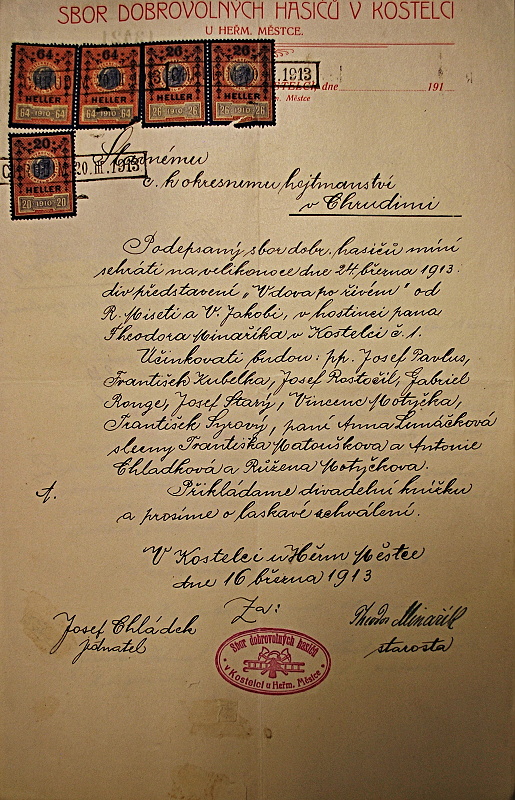 SBOR DOBROVOLNÝCH HASIČŮ V KOSTELCI
U HEŘM. MĚSTCE.
64 64 26 26
HELLER HELLER HELLER HELLER
64 1910 64 64 1910 64 26 1910 26 26 1910 26
1913
KOSTELCI dne 191
Městce
20
HELLER
20 1910 20
20.III.1913
Slavnému
c. k okresnemu hejtmanství
v Chrudimi
Podepsaný sbor dobr. hasičů míní
sehráti na velikonoce dne 24 března 1913.
div představení „Vdova po živém" od
R. Miseti a V. Jakobi, v hostinci pana
Theodora Minaříka v Kostelci č. 1.
Účinkovati budou: pp. Josef Pavlus,
František Kubelka, Josef Rostočil, Gabriel
Ronge, Josef Starý, Vincenc Motyčka,
František Syrový, paní Anna Limáčková
slecny Františka Matouškova a Antonie
Chladková a Růžena Motyčkova.
Přikládame divadelní knížku
a prosíme o laskavé schválení.
V Kostelci u Heřm Městce
dne 16 března 1913
Za:
Josef Chládek Theodor Minařík
jednatel starosta
Sbor dobrovolných hasičů
v Kostelci u Heřm. Městce